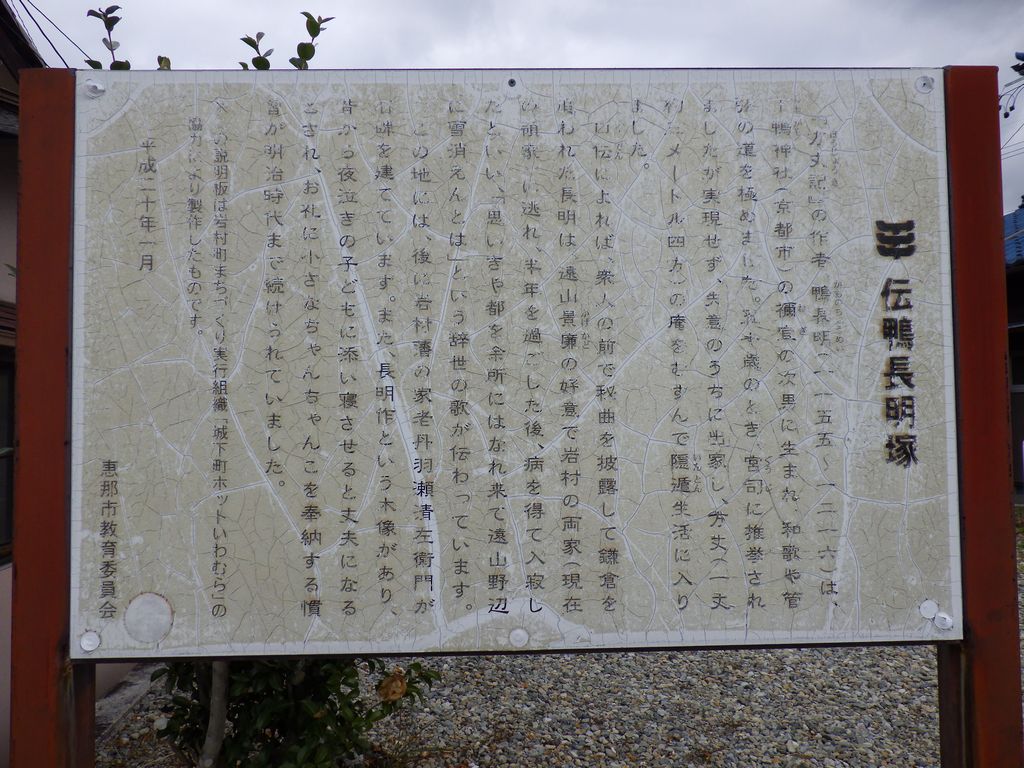 伝鴨長明塚
『方丈記』の作者、鴨長明(一一五五～一二一六)は、
下鴨神社(京都市)の禰宜の次男に生まれ、和歌や管
弦の道を極めました。 歳のとき、宮司に推挙され
ましたが実現せず、失意のうちに出家し、方丈(一丈
約三メートル四方)の庵をむすんで隠遁生活に入り
ました。
口伝によれば、衆人の前で秘曲を披露して鎌倉を
追われた長明は、遠山景廉の好意で岩村の両家(現在
の領家)に逃れ、半年を過ごした後、病を得て入寂し
たといい、「思いきや都を余所にはなれ来て遠山野辺
に雪消えんとは」という辞世の歌が伝わっています。
この地には、後に岩村藩の家老丹羽瀬清左衛門が
石碑を建てています。また、長明作という木像があり、
昔から夜泣きの子どもに添い寝させると丈夫になる
とされ、お礼に小さなちゃんちゃんこを奉納する慣
習が明治時代まで続けられていました。
この説明板は岩村町まちづくり実行組織「城下町ホットいわむら」の
協力により製作したものです。
平成二十年一月
恵那市教育委員会